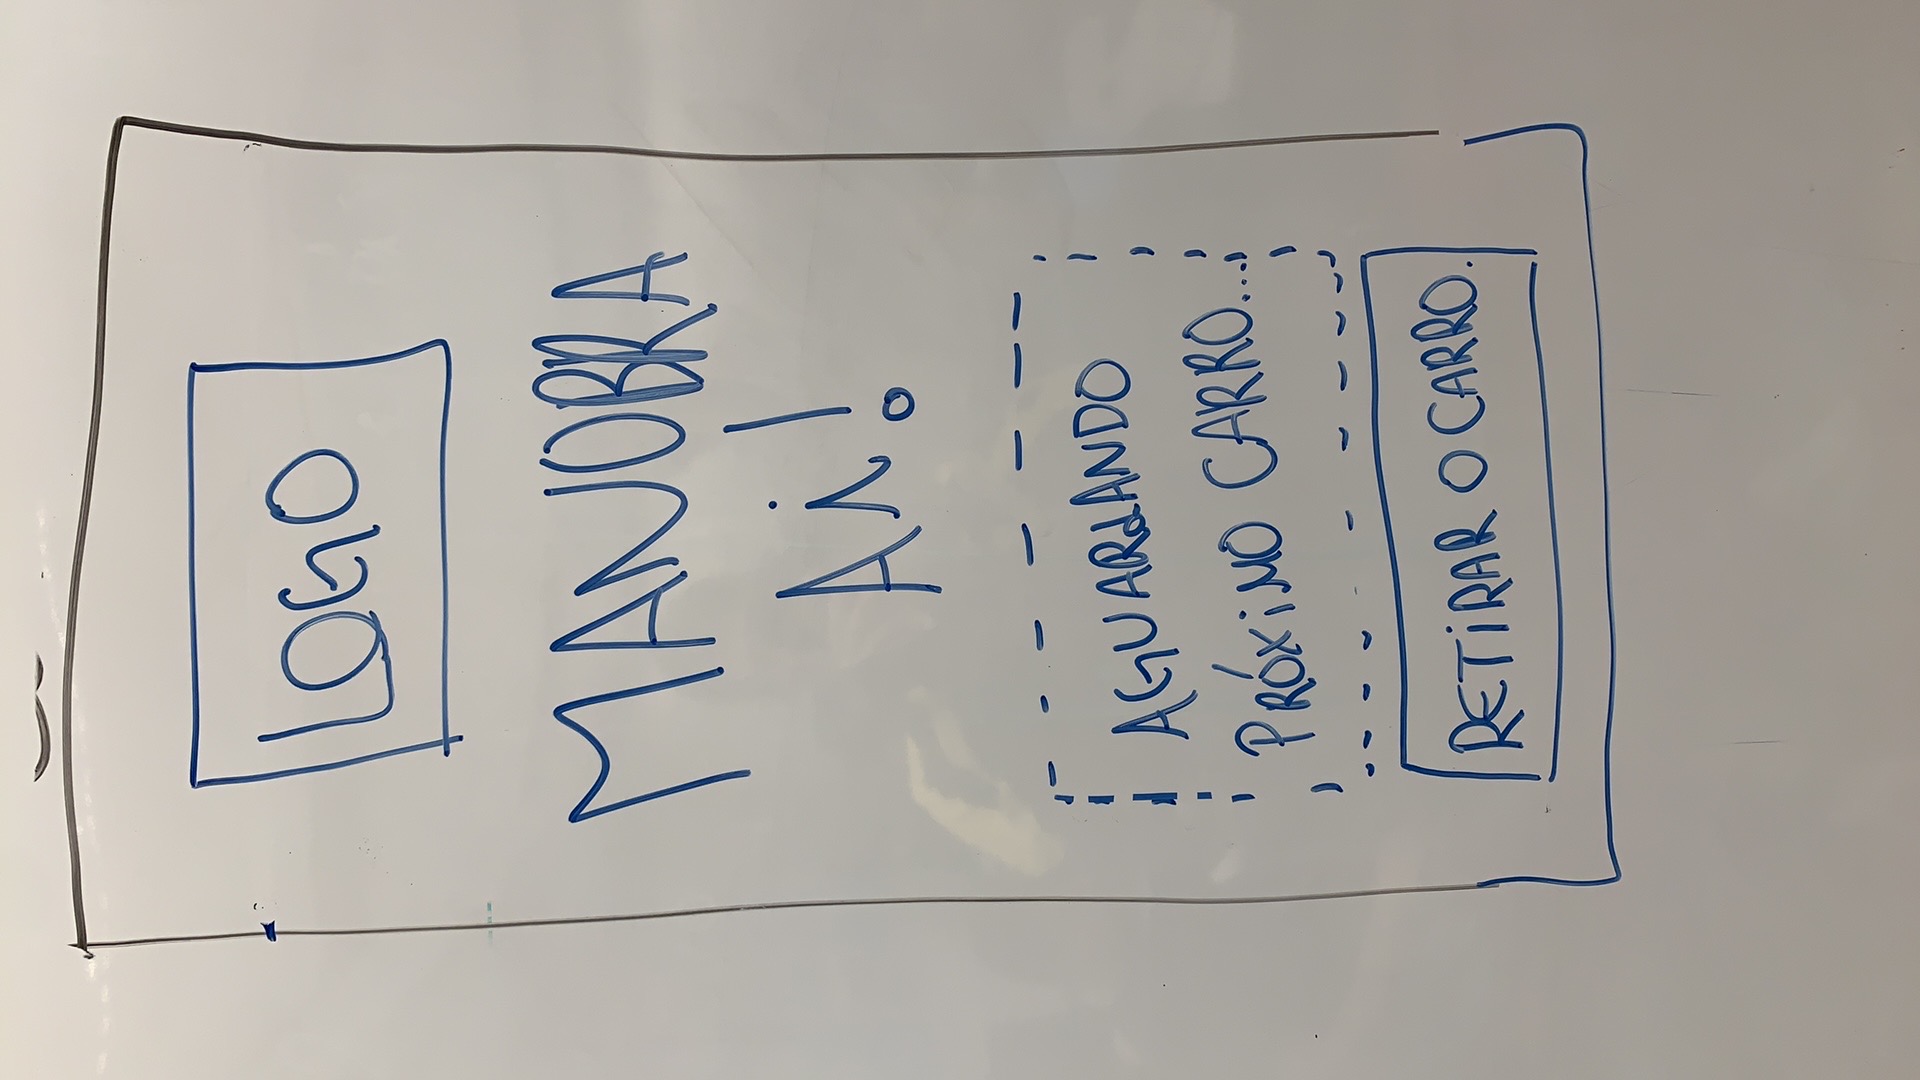 LOGO
MANOBRA
Ai!
AGUARdANDO
PRÓXiMO CARRO...
RETiRAR O CARRO.